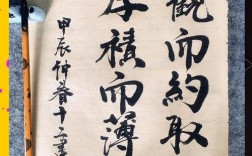 觀而約取
厚積而薄
甲辰仲春十二書